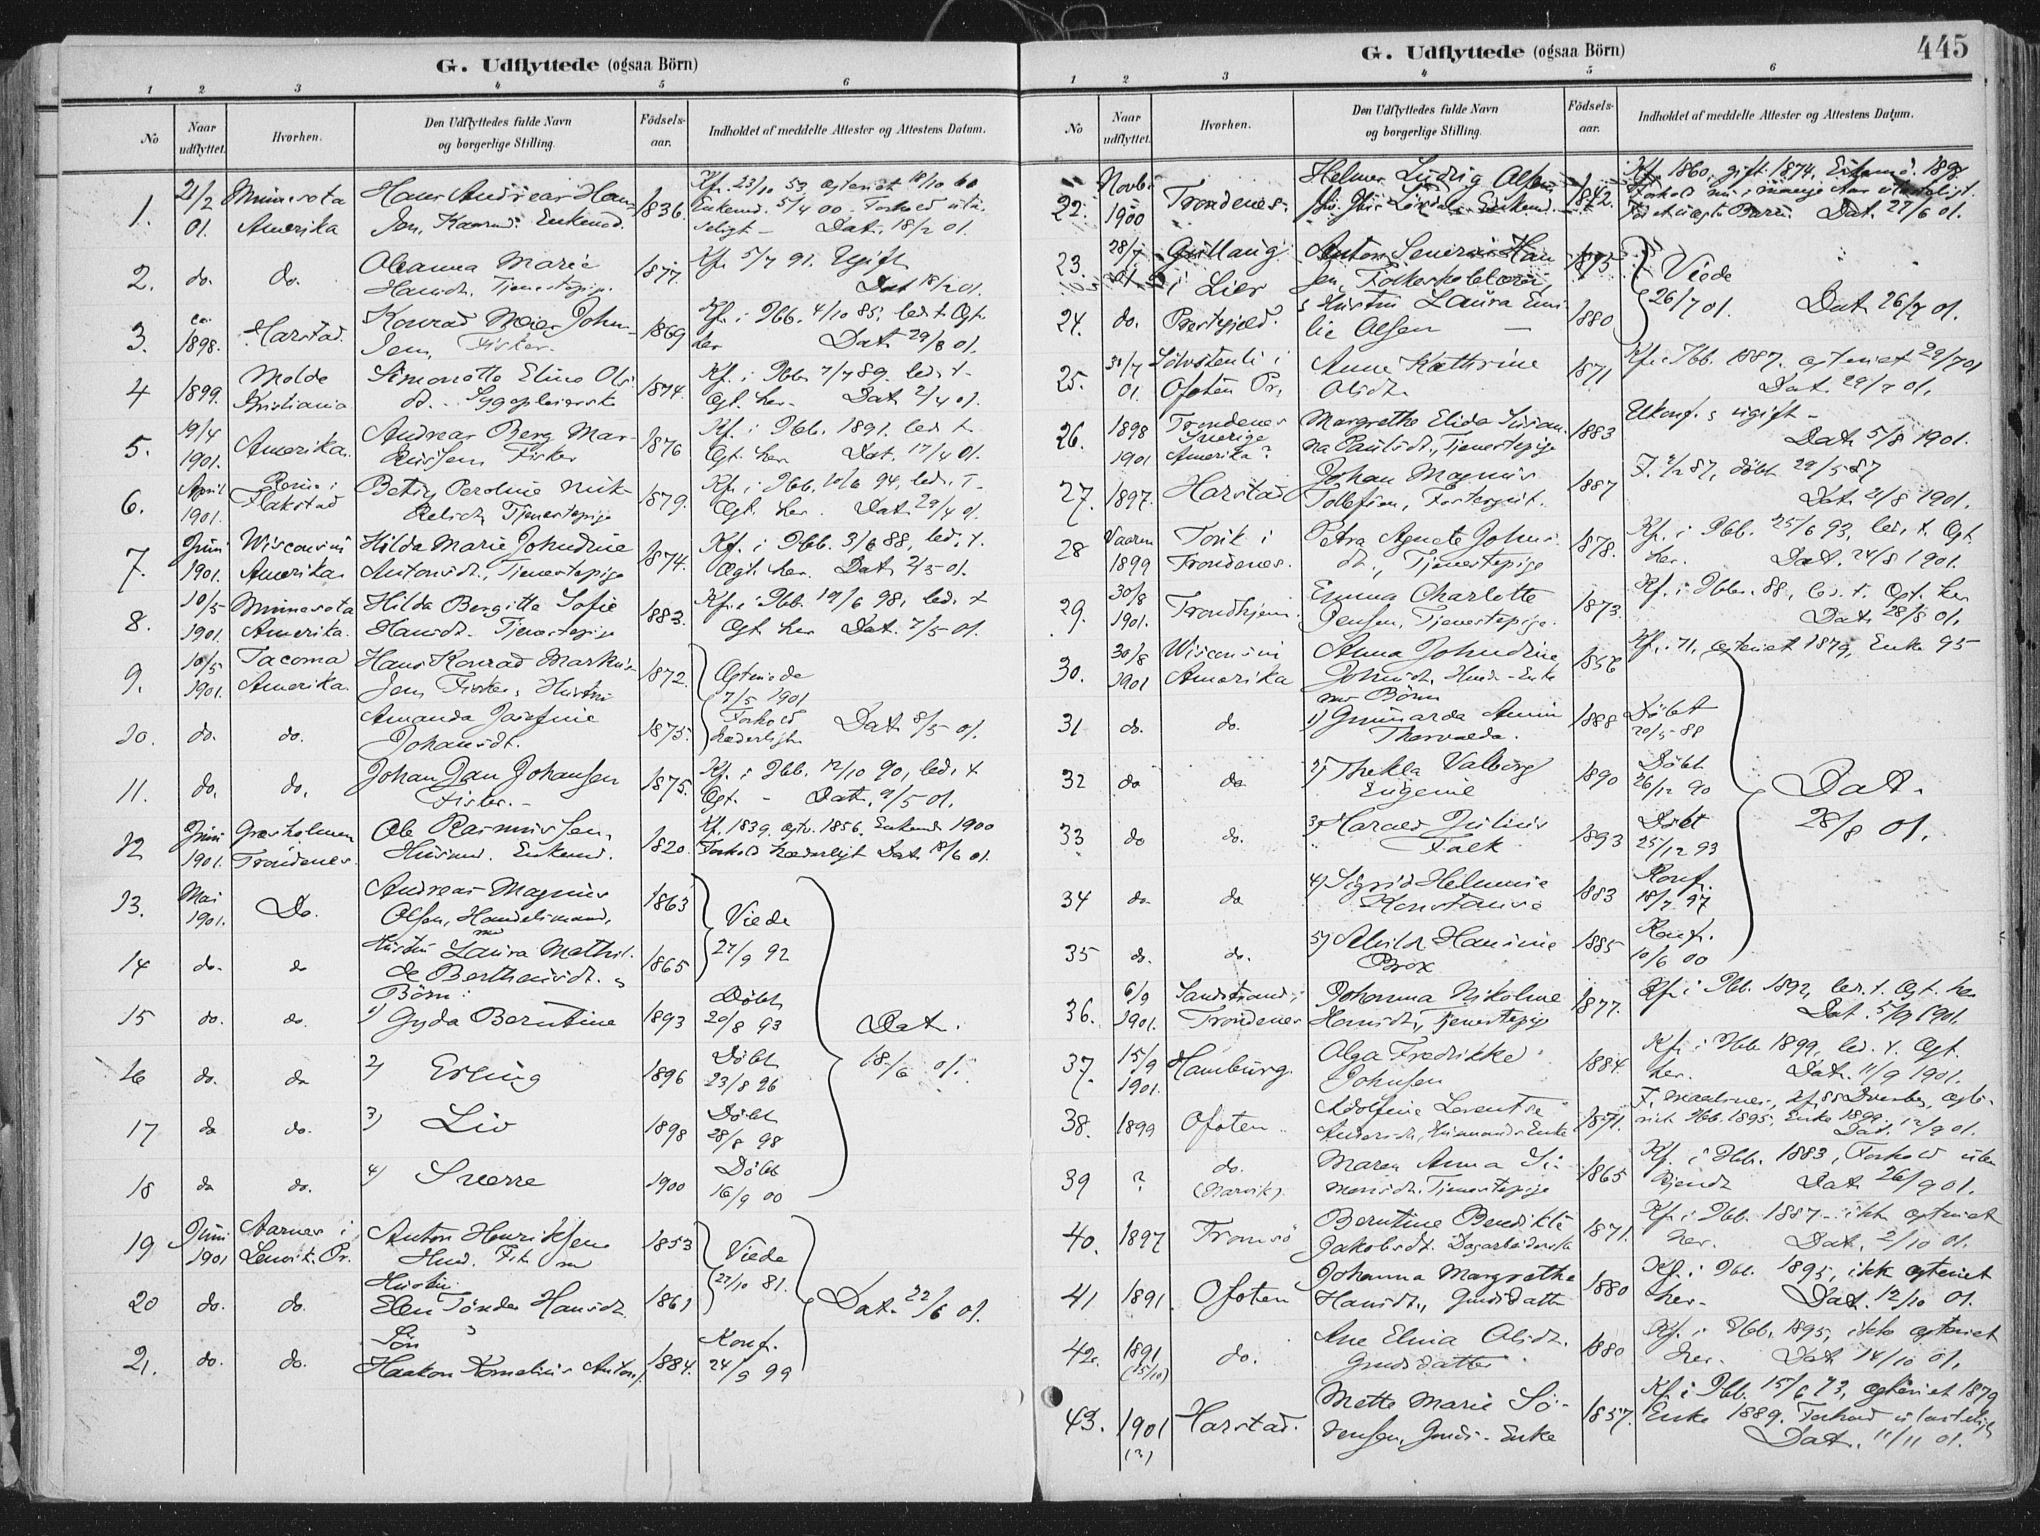 G. Udflyttede (ogsaa Börn)
1 2 3 4 5 6
No Naar udflyttet. Hvorhen. Den Udflyttedes fulde Navn og borgerlige Stilling. Födsels-aar. Indholdet af meddelte Attester og Attestens Datum.
1. 21/2 01. Minnesota Amerika Hans Andreas Han- 1836. Kfr. 23/10 53. 
sen, Enkemd. Enkemd. 5/4 00. Forhold
Dat. 18/2 01.
2. do. do. Oleanna Marie 1877. Kfr. 5/7 91. Ugift
Hansdt. Tjenestepige. Dat 18/2 01.
3. 1898. Harstad. Konrad Meier John- 1869 Kfr. i Ibb. 4/10 85, led. t. Ægt.
sen, Fisker. her Dat. 29/3 01.
4 1899. Molde Kristiania Simonette Eline Ols- 1874. Kfr. i Ibb. 7/7 89. led. t.
dt. Ægt. her. Dat. 2/4 01.
5. 19/4 1901. Amerika. Andreas Berg Mar- 1876 Kf. i Ibb. 1891. led. t.
kussen, Fisker Ægt. her Dat. 17/4 01.
6. April 1901. i Flakstad Betsy Peroline Mik- 1879. Kfr. i Ibb. 10/6 94, led. t.
kelsdt. Tjenestepige Ægt. her. Dat. 29/4 01.
7. Juni 1901. Wisconsin Amerika Hilda Marie Johndine 1874. Kf. i Ibb. 3/6 88, led. t.
Antonsdt., Tjenestepige Ægt. her. Dat. 2/5 01.
8. 10/5 1901. Minnesota Amerika. Hilda Bergitte Sofie 1883. Kfr. i Ibb. 19/6 98, led. t
Hansdt. Tjenestepige Ægt her Dat. 7/5 01.
9. 10/5 1901. Tacoma Amerika. Hans Konrad Markus- 1872. Ægteviede
sen, Fisker, Hustru 7/5 1901
10. do. do. Amanda Josefine 1875. Forhold Dat. 8/5 01.
Johansdt. hæderligt
11. do. do. Johan Jan Johansen 1875. Kf. i Ibb. 12/10 90, led. t
Fisker. Ægt. Dat. 9/5 01.
12 Juni 1901. Græsholmen Trondenes. Ole Rasmussen, 1820. Kf. 1839. ægtv. 1856. Enkemd 1900
Husmd. Enkemd. Forhold hæderligt Dat. 18/6 01.
13. Mai 1901. Do. Andreas Magnus 1863 Viede
Olsen, Handelsmand, 27/9 92
14 do. do Hustru Laura Mathil- 1865
de Bertheusdt.
Börn:
15 do. do. 1) Gyda Berntine 1893 Döbt 20/8 93 Dat. 18/6 01.
16 do. do 2) Erling 1896 Döbt 23/8 96
17 do do. 3) Liv 1898 Döbt 28/8 98
18 do do. 4) Sverre 1900 Döbt 16/9 00
19 Juni 1901 Aarnes i Lenvik Pr. Anton Henriksen 1853 Viede
22/10 81.
20 do. do. Hustru 1861 Dat. 22/6 01.
Elen Tönder Hansdt.
21. do. do. Sön 1884. Konf. 24/9 99
Haakon Kornelius Antons.
G. Udflyttede (ogsaa Börn) 445
1 2 3 4 5 6
No Naar udflyttet. Hvorhen. Den Udflyttedes fulde Navn og borgerlige Stilling. Födsels-aar. Indholdet af meddelte Attester og Attestens Datum.
22. Novbr 1900 Trondenes. Helmer Ludvig Olsen 1842. Kf. 1860, gift 1874.
Dat. 27/6 01.
23. 28/7 i Lier Anton Han- 1875 Viede
sen, Folkeskolelærer, 26/7 01. Dat. 26/7 01.
24. do. Hustru Laura Emi- 1880
lie Olsen
25. 31/7 01. i Ofoten Pr. Anne Kathrine 1871 Kfr. i Ibb. 1887. 29/7 01
Olsdt. Dat. 29/7 01.
26. 1898 1901 Trondenes Sverige Amerika? Margrethe Elida Susan- 1883 Ukonf. ugift
na Paulsdt., Tjenestepige Dat. 5/8 1901.
27. 1897. Harstad Johan Magnus 1887 F. 2/2 87, döbt 29/5 87
Tollefsen, Fostergut. Dat. 2/8 1901.
28 Vaaren 1899 i Trondenes. Petra Agnete Johns- 1878. Kf. i Ibb. 25/6 93, led. t. Ægt.
dt., Tjenestepige her. Dat. 24/8 1901.
29. 30/8 1901. Trondhjem. Emma Charlotte 1873. Kf. i Ibb. 88, led. t. Ægt. her
Jensen, Tjenestepige. Dat. 28/8 01.
30. 30/8 1901 Wisconsin Amerika Anna Johndine 1856 Kf. 71, ægteviet 1879, Enke 95
Johnsdt. Husm.-Enke
m. Börn
31 do. do. 1) Gunnarda Annin 1888 Döbt 20/5 88
Thorvalda.
32 do do 2) Thekla Valborg 1890 Döbt 26/12 90 Dat. 28/8 01.
Eugenie
33 do do. 3) Harald Julius 1893 Döbt 25/12 93
Falk
34 do do 4) Sigrid Helmine 1883 Konf. 18/7 97
Konstanse
35 do. do. 5) Alvilde Hansine 1885 Konf. 10/6 00
Brox
36. 6/9 1901. Sandstrand i Trondenes Johanna Nikoline 1877. Kfr. i Ibb. 1892, led. t. Ægt. her
Hansdt., Tjenestepige Dat. 5/9 1901.
37. 15/9 1901. Hamburg Olga Fredrikke 1884. Kf. i Ibb. 1899, led. t. Ægt.
Johnsen her. Dat. 11/9 1901.
38. 1899 Ofoten Adolfine Lorentse 1871. F. Maalsnes, Kf. 85
Andersdt., Husmands Enke Ibb. 1895, Enke 1899. Dat. 12/9 01.
39 ? do. (Narvik). Maren Anna Si- 1865 Kf. i Ibb. 1883, Forhold ube-
monsdt. Tjenestepige kjendt Dat. 26/9 01.
40. 1897 Tromsö Berntine Bendikte 1871. Kf. i Ibb. 1887 ikke ægteviet
Jakobsdt. Dagarbeiderske her. Dat. 2/10 01.
41 1891. Ofoten Johanna Margrethe 1880 Kf. i Ibb. 1895, ikke ægteviet
Hansdt., Grdsdatter her. Dat. 12/10 01.
42. 1891 (15/10) do. Ane Elina Olsdt. 1880 Kf. i Ibb. 1895, ikke ægteviet
Grdsdatter her. Dat. 14/10 01.
43. 1901 (?) Harstad. Mette Marie Sö- 1857. Kf. i Ibb. 15/6 73, ægteviet 1879
rensen, Grds.-Enke Enke 1889. Forhold ulasteligt
Dat. 11/11 01.